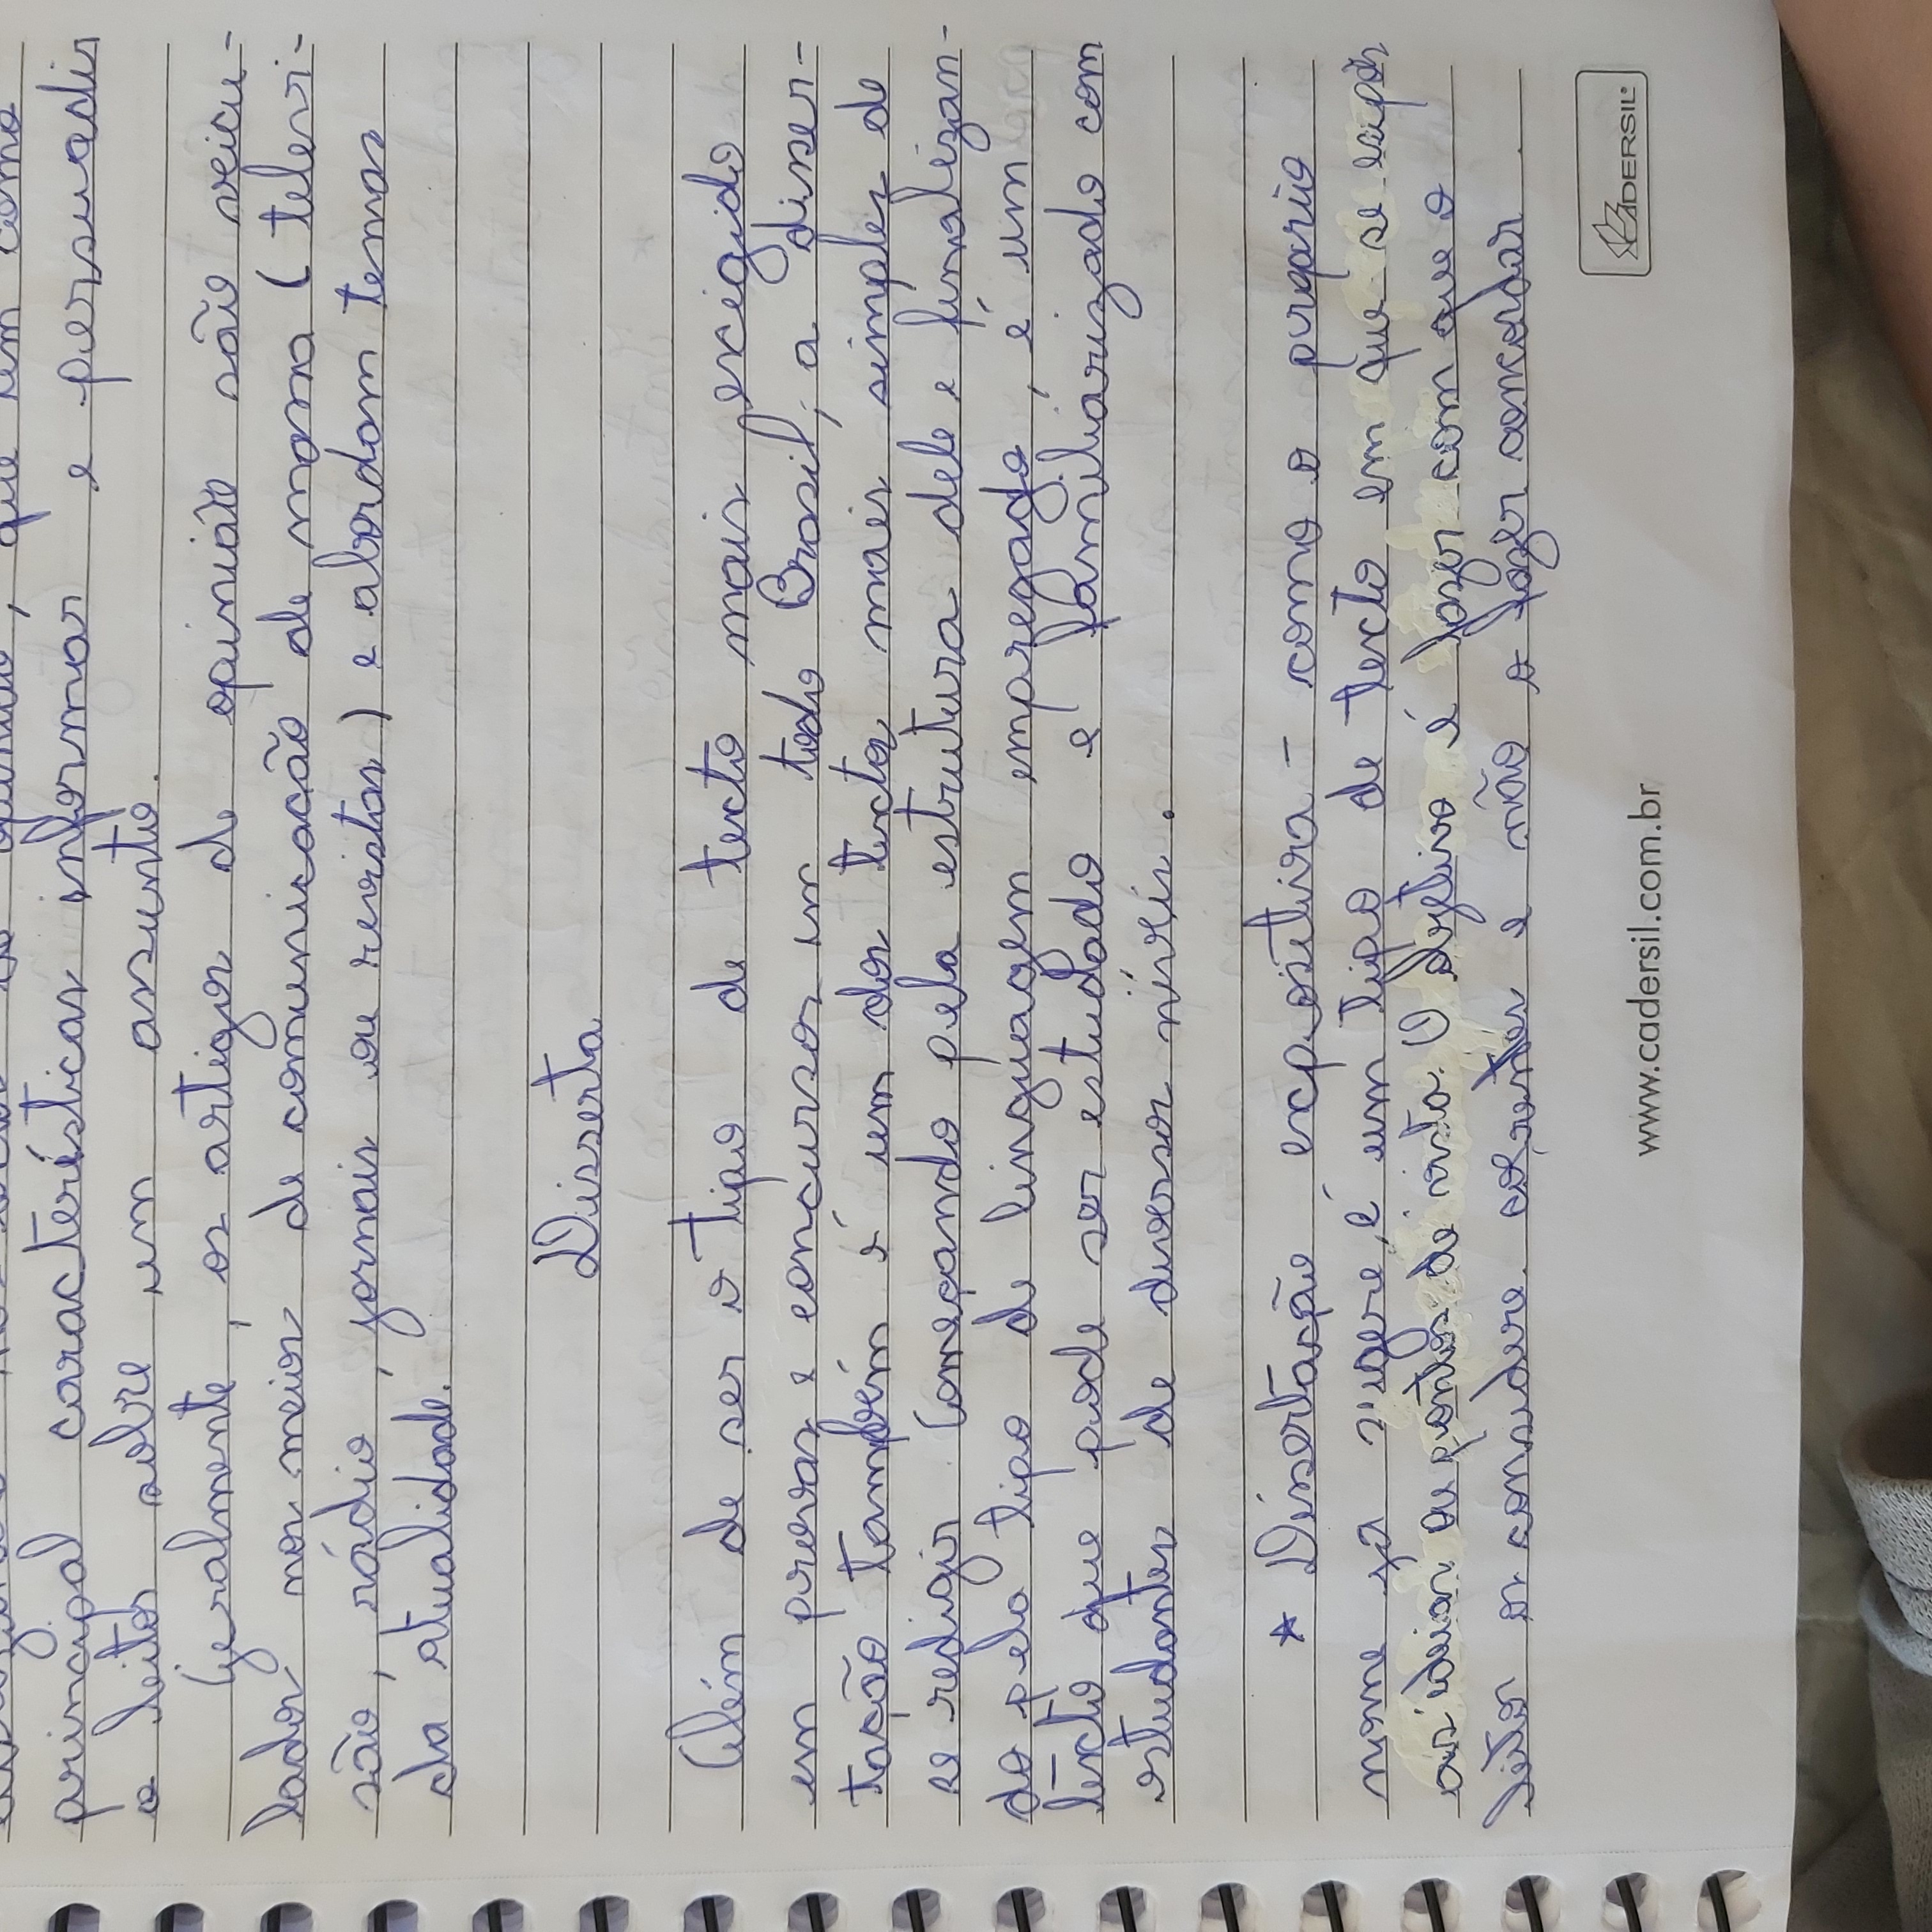 que tem como
principal características informar e persuadir
o leitor sobre um assunto.
Geralmente, os artigos de opinião são veicu-
lados nos meios de comunicação de massa ( televi-
são, rádio, jornais ou revistas ) e abordam temas
da atualidade.
Disserta
Além de ser o tipo de texto mais exigido
em provas e concursos em todo Brasil, a disser-
tação também é um dos textos mais simples de
se redigir. Começando pela estrutura dele e finalizan-
do pelo tipo de linguagem empregado, é um
texto que pode ser estudado e familiarizado com
estudantes de diversos níveis.
* Dissertação expositiva - como o próprio
nome já sugere, é um tipo de texto em que se expõe
as ideias ou pontos de vista. O objetivo é fazer com que o
leitor os considere coerentes e não o fazer concordar
www.cadersil.com.br
CADERSIL